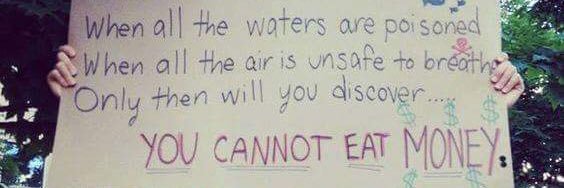 When all the waters are poisoned
When all the air is unsafe to breathe
Only then will you discover....
YOU CANNOT EAT MONEY.